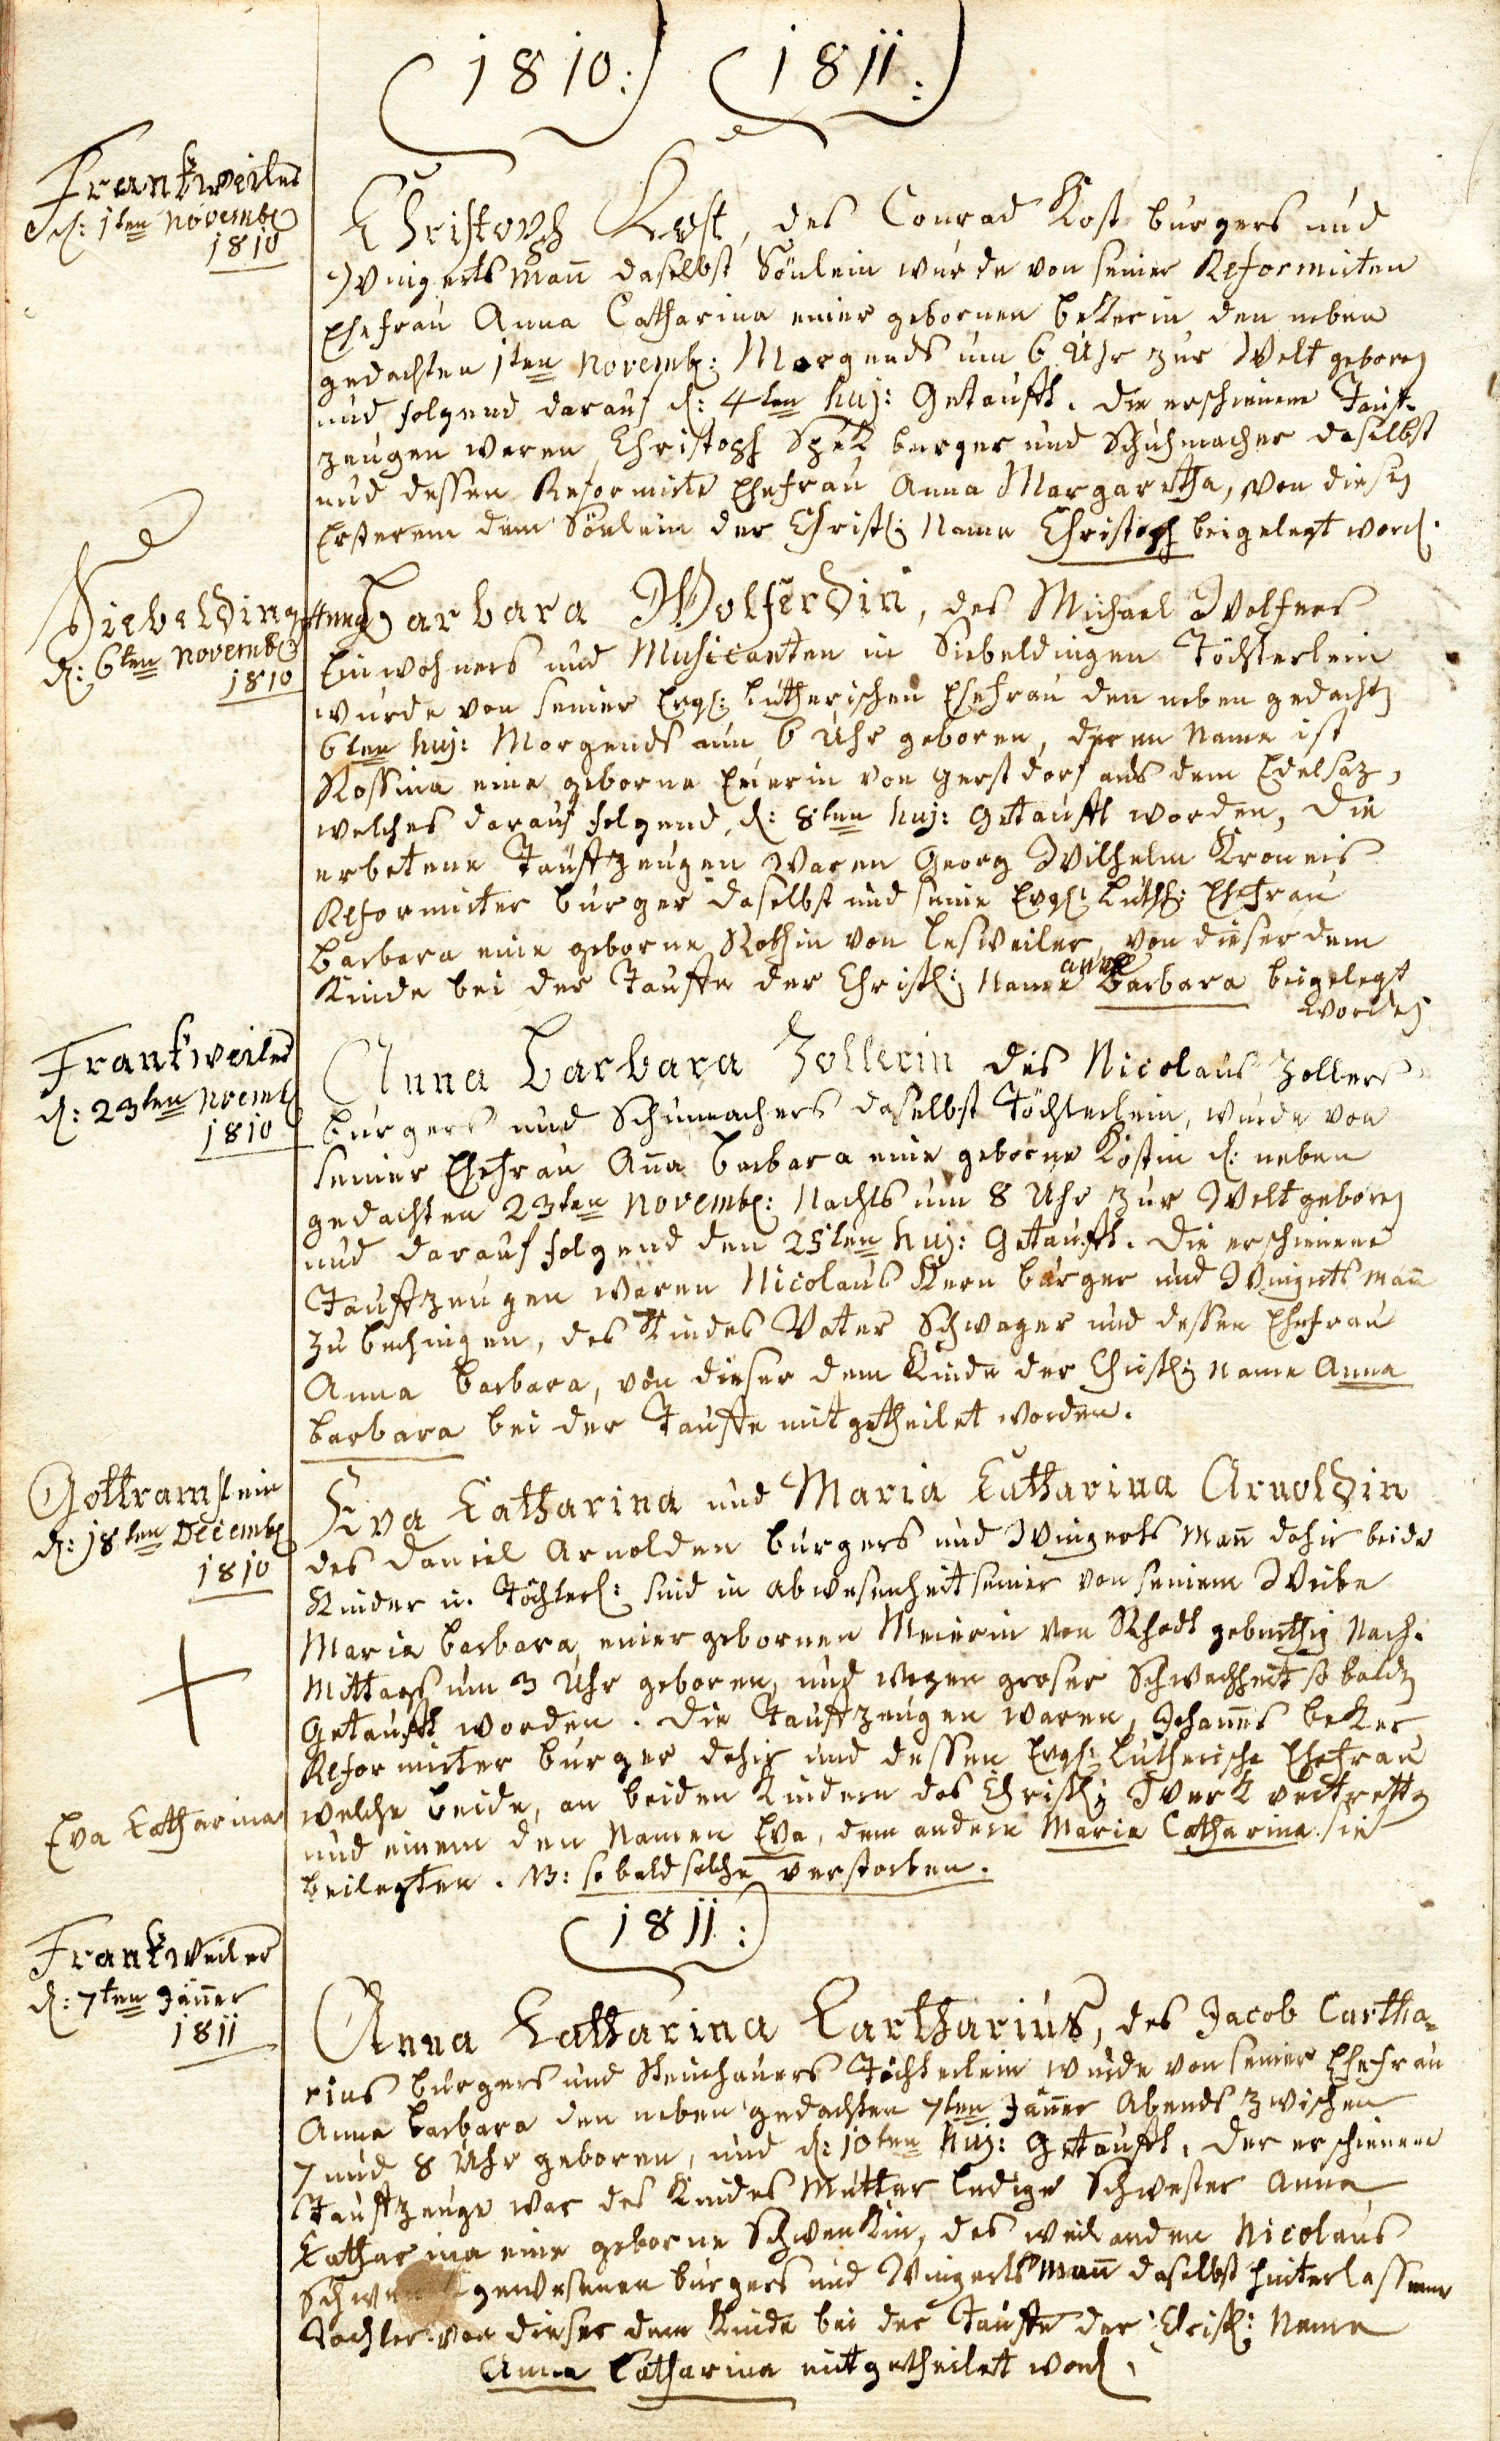 1810: 1811:
Frankweiler
d: 1ten Novemb:
1810
Christoph Kost, des Conrad Kost burgers und
Wingertsmañ daselbst Sönlein wurde von seiner Reformirten
Ehefrau Anna Catharina einer gebornen bekerin den neben
gedachten 1ten Novemb: Morgends um 6 Uhr zur Welt geboren
und folgend darauf d: 4ten huj: Getaufft. Die erschienene Tauf-
zeugen waren Christoph Spek burger und Schuhmacher daselbst
und dessen Reformirte Ehefrau Anna Margaretha, von diesen
Ersterem dem Sönlein der Christl: Name Christoph beigelegt word.
Siebelding
d: 6ten Novemb:
1810
Anna Barbara Wolferdin, des Michael Wolfers
Einwohners und Musicanten in Siebeldingen Töchterlein
wurde von seiner Evgl: Lutherischen Ehefrau den neben gedachten
6ten huj: Morgends um 6 Uhr geboren, deren Name ist
Rossina eine geborne von Gerstdorf aus dem Edelsaz,
welches darauf folgend d: 8ten huj: Getaufft worden, Die
erbetene Tauffzeugen waren Georg Wilhelm Kroneis
Reformirter burger daselbst und seine Evgl: Luth: Ehefrau
Barbara eine geborne Rothin von, von dieser dem
Kinde bei der Tauffe der Christl: Name anna Barbara beigelegt
worden
Frankweiler
d: 23ten Novemb
1810
Anna Barbara Zollerin des Nicolaus Zollers
burgers und Schumachers daselbst Töchterlein, wurde von
seiner Ehefrau Aña Barbara eine geborne Kostin d: neben
gedachten 23ten Novemb: Nachts um 8 Uhr zur Welt geboren
und darauf folgend den 25ten huj: Getaufft. Die erschienene
Tauffzeugen waren Nicolaus Kern burger und Wingertsmañ
zu bechingen, des Kindes Vater Schwager und dessen Ehefrau
Anna Barbara, von dieser dem Kinde der Christl: Name Anna
Barbara bei der Tauffe mitgetheilet worden.
Gottramstein
d: 18ten Decemb
1810
Eva Catharina
Eva Catharina und Maria Catharina Arnoldin
des Daniel Arnolden burgers und Wingerts Mañ dahir beide
Kinder u. Töchterl: sind in abwesenheit seiner von seinem Weibe
Maria Barbara einer gebornen Meierin von Rhodt Nach-
Mittags um 3 Uhr geboren, und wegen groser Schwachheit so balden
Getaufft worden. Die Tauffzeugen waren, Johañes beker
Reformirter burger dahir und dessen Evgl: Lutherische Ehefrau
welche beide, an beiden Kindern das Christl: Werk vertretten
und einem den Namen Eva, dem andern Maria Catharina sie
beilegten. NB: so bald solche verstorben.
1811:
Frankweiler
d: 7ten Jäñer
1811
Anna Catharina Carthariús, des Jacob Cartha-
rius burgers und Steinhauers Töchterlein wurde von seiner Ehefrau
Anna Barbara den neben gedachten 7ten Jäñer Abends zwischen
7 und 8 Uhr geboren, und d: 10ten huj: Getaufft. Der erschienene
Tauffzeuge war des Kindes Mutter ledige Schwester Anna
Catharina eine geborne Schwenkin, des weilanden Nicolaus
gewesenen burgers und Wingertsmañ daselbst hinterlassene
Tochter von dieser dem Kinde bei der Tauffe der Christl: Name
Anna Catharina mitgetheilet word.